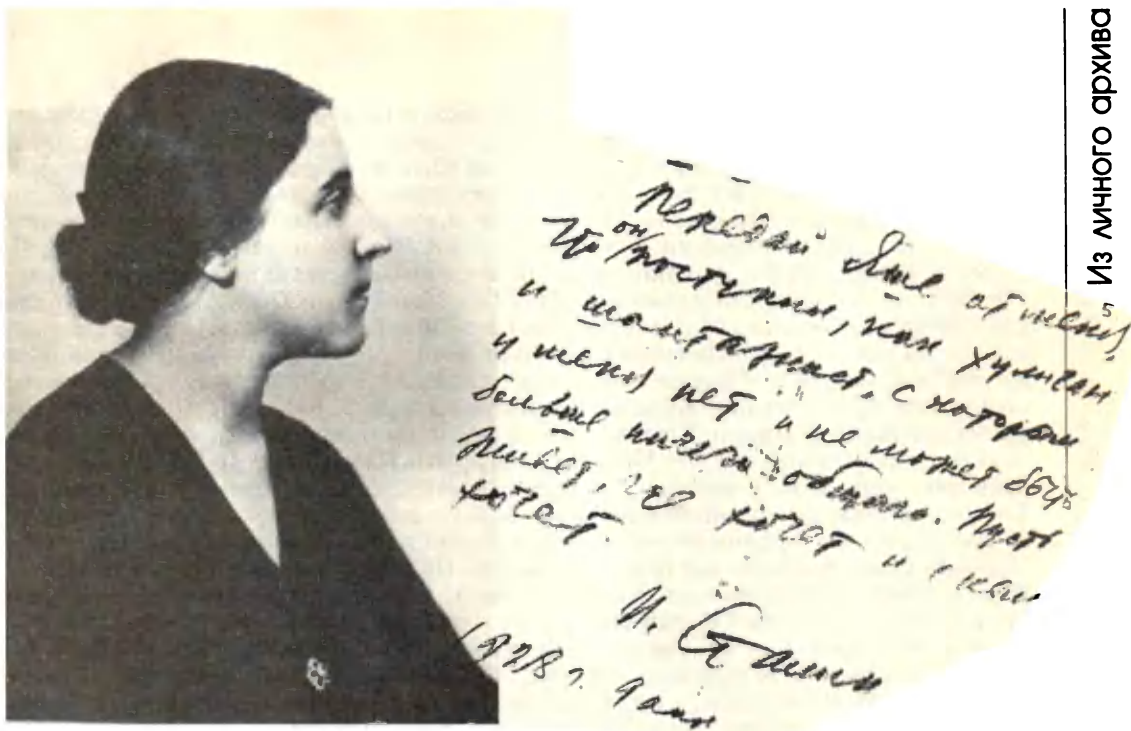 Из личного архива
5
Передай Яше от меня,
что он поступил, как хулиган
и шантажист, с которым
у меня нет и не может быть
больше ничего общего. Пусть
живет, где хочет и с кем
хочет.
И. Сталин
1928 г. 9 апр